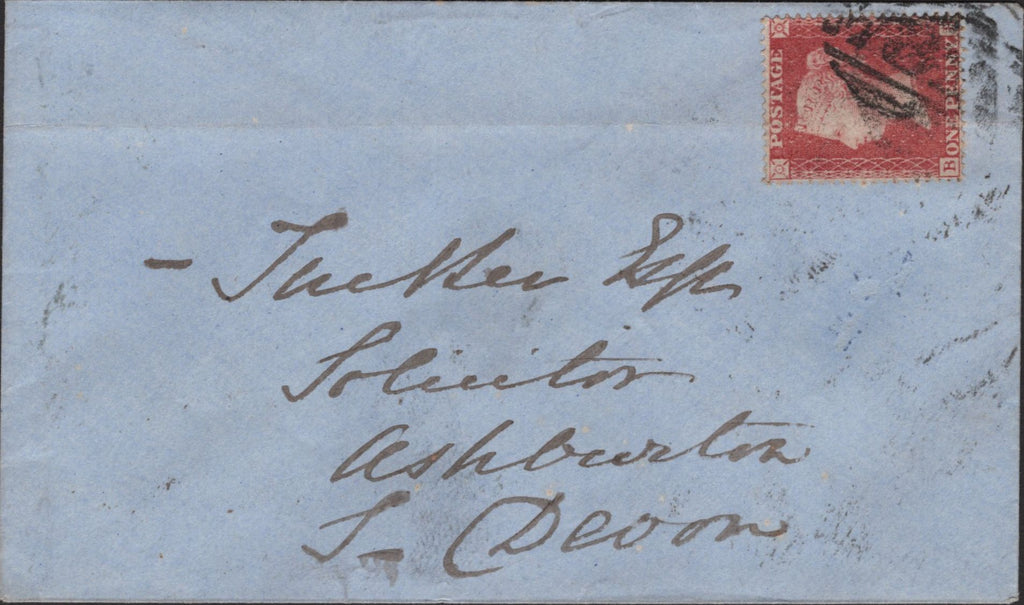 POSTAGE
ONE PENNY
B
- Tucker Esqr
Solicitor
Ashburton
S- Devon